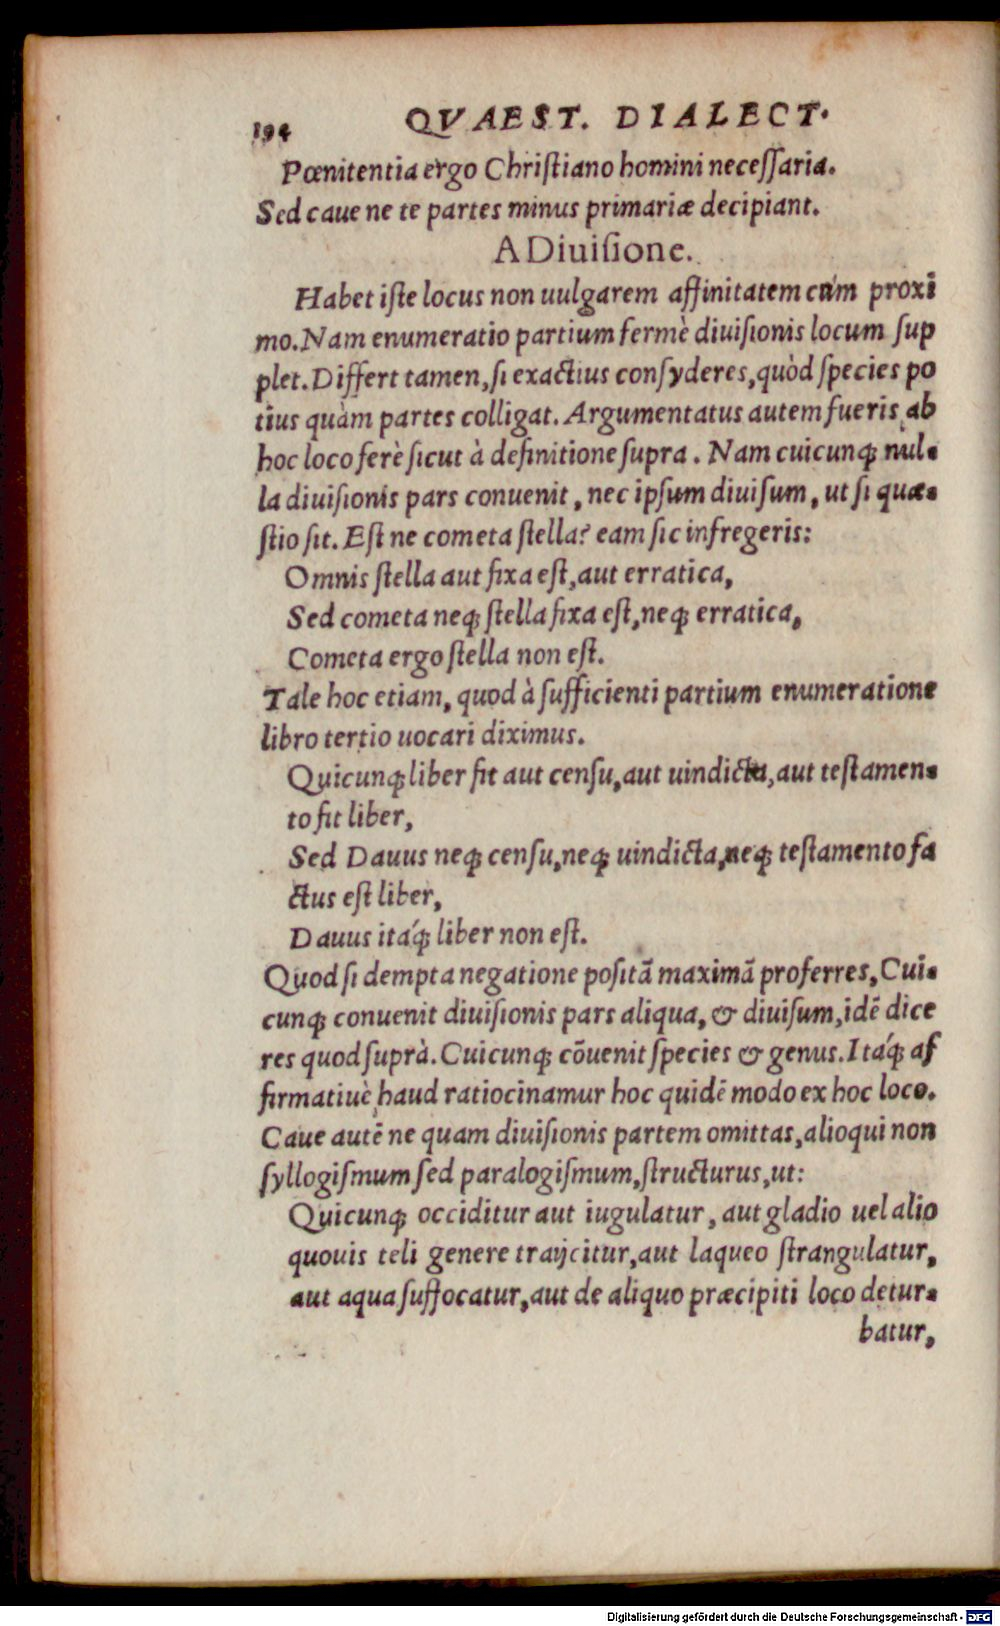 194 QVAEST. DIALECT.
Pœnitentia ergo Chriſtiano homini neceſſaria.
Sed caue ne te partes minus primariæ decipiant.
A Diuiſione.
Habet iſte locus non uulgarem affinitatem cum proxĩ
mo. Nam enumeratio partium fermè diuiſionis locum ſup
plet. Differt tamen, ſi exactius conſyderes, quòd ſpecies po
tius quàm partes colligat. Argumentatus autem fueris ab
hoc loco ferè ſicut à definitione ſupra. Nam cuicunq; nul-
la diuiſionis pars conuenit, nec ipſum diuiſum, ut ſi quæ-
ſtio ſit. Eſt ne cometa ſtella? eam ſic infregeris:
Omnis ſtella aut fixa eſt, aut erratica,
Sed cometa neq; ſtella fixa eſt, neq; erratica,
Cometa ergo ſtella non eſt.
Tale hoc etiam, quod à ſufficienti partium enumeratione
libro tertio uocari diximus.
Quicunq; liber fit aut cenſu, aut uindicta, aut teſtamen-
to fit liber,
Sed Dauus neq; cenſu, neq; uindicta, neq; teſtamento fa
ctus eſt liber,
Dauus itáq; liber non eſt.
Quod ſi dempta negatione poſitã maximã proferres, Cui-
cunq; conuenit diuiſionis pars aliqua, & diuiſum, idẽ dice
res quod ſuprà. Cuicunq; cõuenit ſpecies & genus. Itáq; af
firmatiuè haud ratiocinamur hoc quidẽ modo ex hoc loco.
Caue autẽ ne quam diuiſionis partem omittas, alioqui non
ſyllogiſmum ſed paralogiſmum, ſtructurus, ut:
Quicunq; occiditur aut iugulatur, aut gladio uel alio
quouis teli genere traijcitur, aut laqueo ſtrangulatur,
aut aqua ſuffocatur, aut de aliquo præcipiti loco detur-
batur,
Digitalisierung gefördert durch die Deutsche Forschungsgemeinschaft - DFG